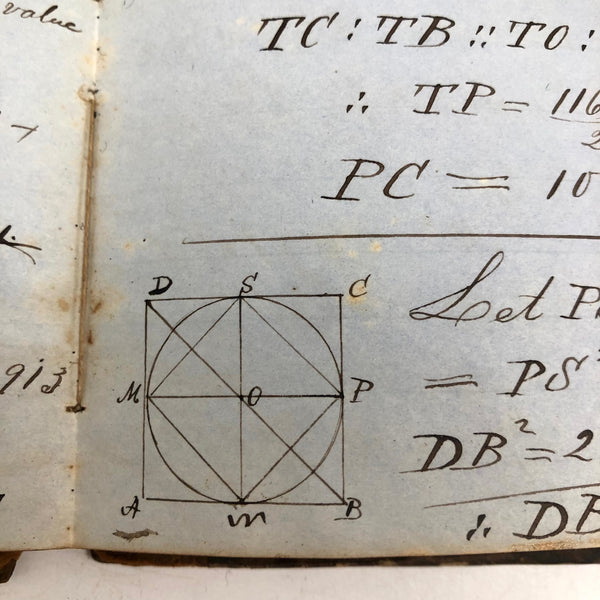 value
TC : TB :: TO :
∴ TP = 116
2
PC = 10
D S C
Let PS
913
M O P
= PS²
DB² = 2
A m B
∴ DB